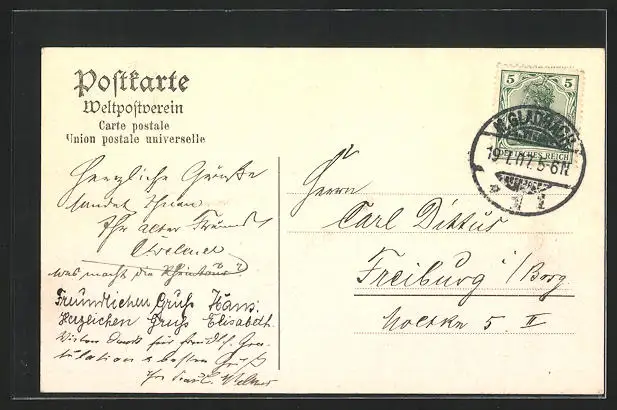 Postkarte
Weltpostverein
Carte postale
Union postale universelle
5 5
DEUTSCHES REICH
M. GLADBACH
Herzliche Grüße
sendet Ihnen
Ihr alter Freund
was macht die
Freundlichen Gruß Hans.
Herzlichen Gruß Elisabeth.
Vielen Dank für frdl. Gra-
tulation & besten Gruß
Ihr
Herrn
Carl Dittus
Freiburg i/Borg
Moltke 5. II